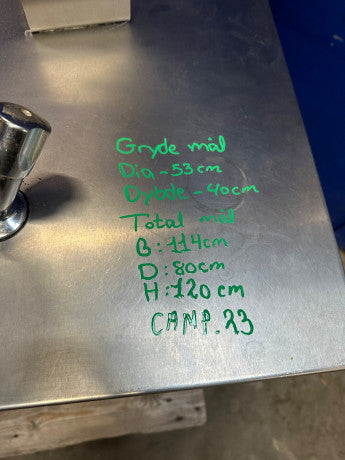 Gryde mål
Dia - 53 cm
Dybde - 40cm
Total mål
B: 114cm
D: 80cm
H: 120 cm
CAMP. 23